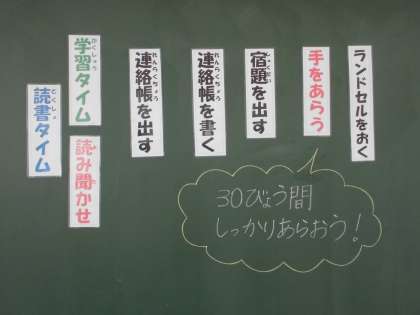 ランドセルをおく
手をあらう
宿題を出す
連絡帳を書く
連絡帳を出す
学習タイム
読み聞かせ
読書タイム
30びょう間
しっかりあらおう!